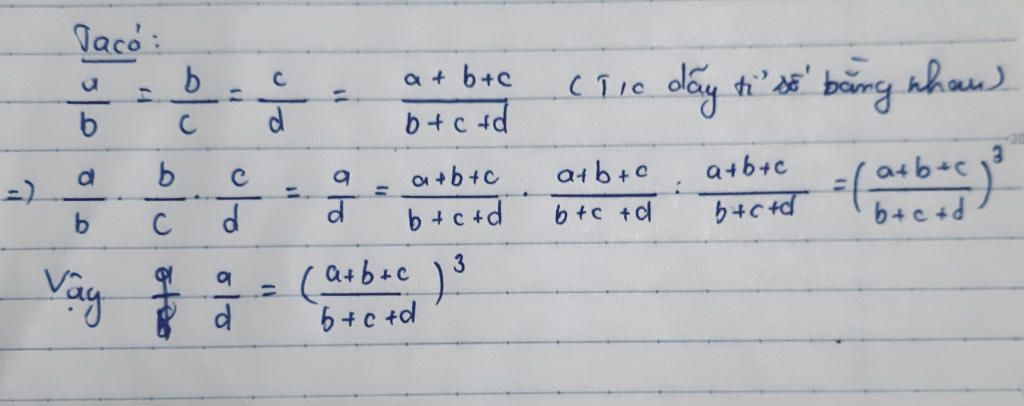 Ta có:
a/b = b/c = c/d = (a + b + c)/(b + c + d) (T/c dãy tỉ số bằng nhau)
=) a/b . b/c . c/d = a/d = (a+b+c)/(b+c+d) . (a+b+c)/(b+c+d) : (a+b+c)/(b+c+d) = ((a+b+c)/(b+c+d))³
Vậy a/d = ((a+b+c)/(b+c+d))³